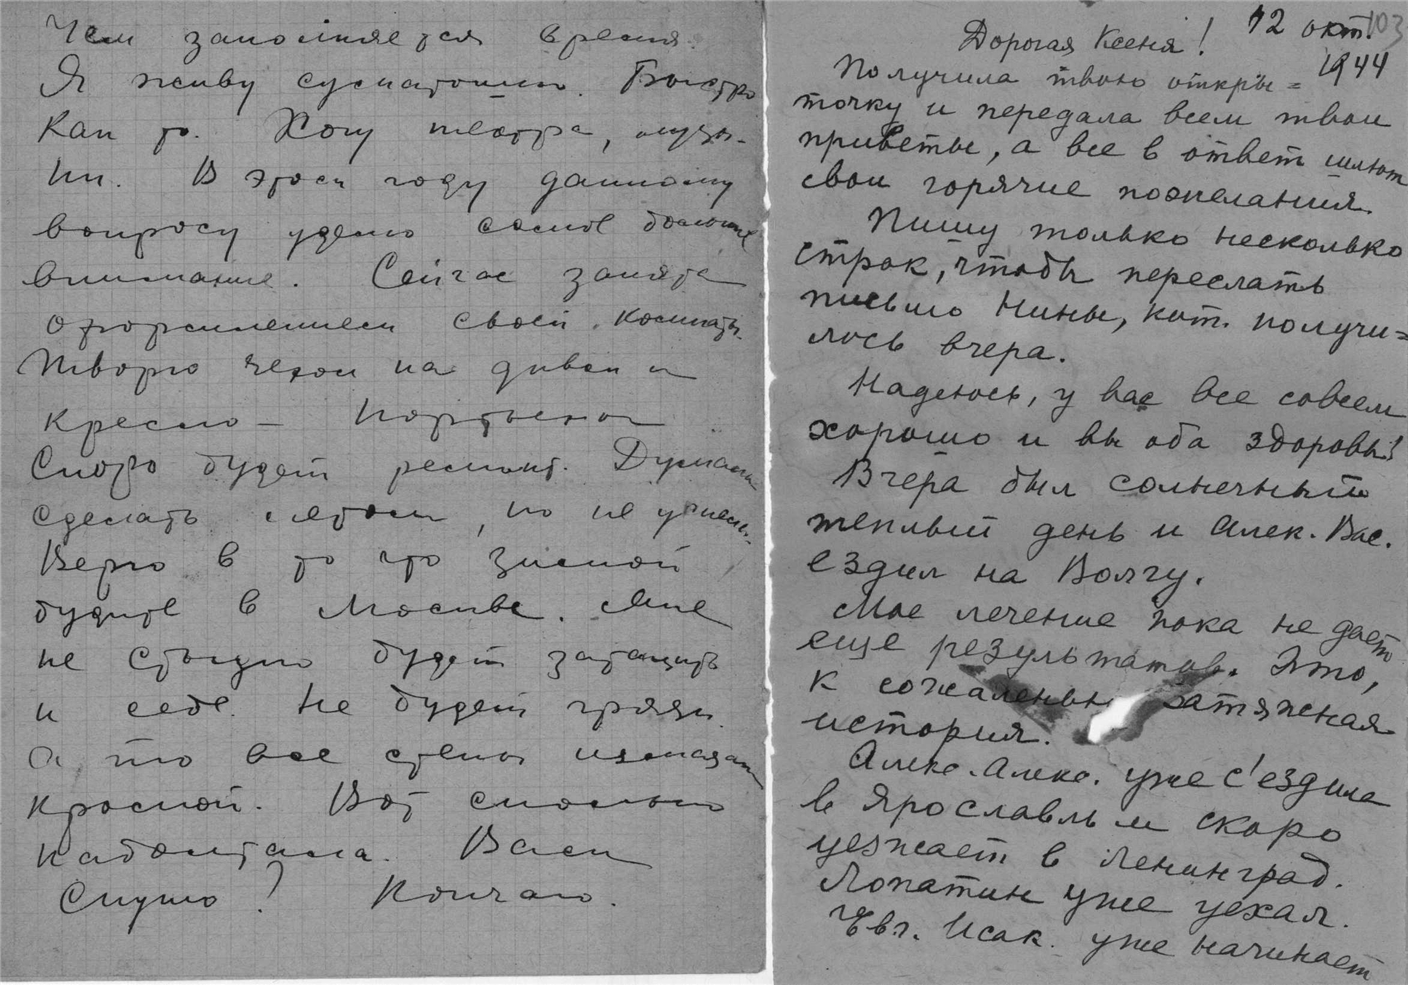 Чем заполняется время.
Я живу суматошно. Быстро
как то. Хочу театра, музы-
ки. В этом году данному
вопросу уделю самое большое
внимание. Сейчас занята
оформлением своей комнаты.
Творю чехол на диван и
кресло – портьеры
Скоро будет ремонт. Думали
сделать летом, но не успели.
Верю в то что зимой
будите в Москве. Мне
не стыдно будет затащить
к себе. Не будет грязи.
А то все стены измазаны
краской. Вот сколько
наболтала. Вам
скучно? Кончаю.
103
12 окт
1944
Дорогая Ксеня!
Получила твою откры=
точку и передала всем твои
приветы, а все в ответ шлют
свои горячие пожелания.
Пишу только несколько
строк, чтобы переслать
письмо Нины, кот. получи=
лось вчера.
Надеюсь, у вас все совсем
хорошо и вы оба здоровы?
Вчера был солнечный
теплый день и Алек. Вас.
ездил на Волгу.
Мое лечение пока не дает
еще результатов. Это,
к сожаленью затяжная
история.
Алекс. Алекс. уже с'ездила
в Ярославль и скоро
уезжает в Ленинград.
Лопатин уже уехал.
Евг. Исак. уже начинает